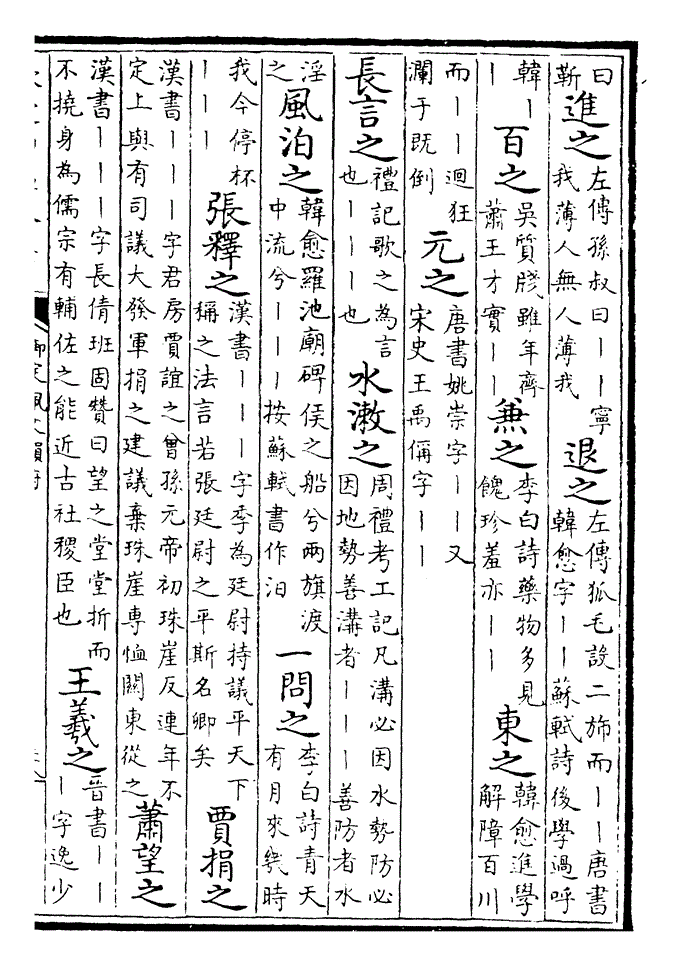 曰靳進之左傳孫叔曰丨丨寧我薄人無人薄我退之左傳狐毛設二旆而丨丨唐書韓愈字丨丨蘇軾詩後學過呼
韓丨丨百之吳質牋雖年齊蕭王才實丨丨兼之李白詩藥物多見餽珍羞亦丨丨東之韓愈進學解障百川
而丨丨迴狂瀾于既倒元之唐書姚崇字丨丨又宋史王禹偁字丨丨
長言之禮記歌之為言也丨丨丨也水潄之周禮考工記凡溝必因水勢防必因地勢善溝者丨丨丨善防者水
淫之風泊之韓愈羅池廟碑侯之船兮兩旗渡中流兮丨丨丨按蘇軾書作汩一問之李白詩青天有月來幾時
我今停杯丨丨丨張釋之漢書丨丨丨字季為廷尉持議平天下稱之法言若張廷尉之平斯名卿矣賈捐之
漢書丨丨丨字君房賈誼之曾孫元帝初珠崖反連年不定上與有司議大發軍捐之建議棄珠崖専恤關東從之蕭望之
漢書丨丨丨字長倩班固贊曰望之堂堂折而不撓身為儒宗有輔佐之能近古社稷臣也王羲之晉書丨丨丨字逸少